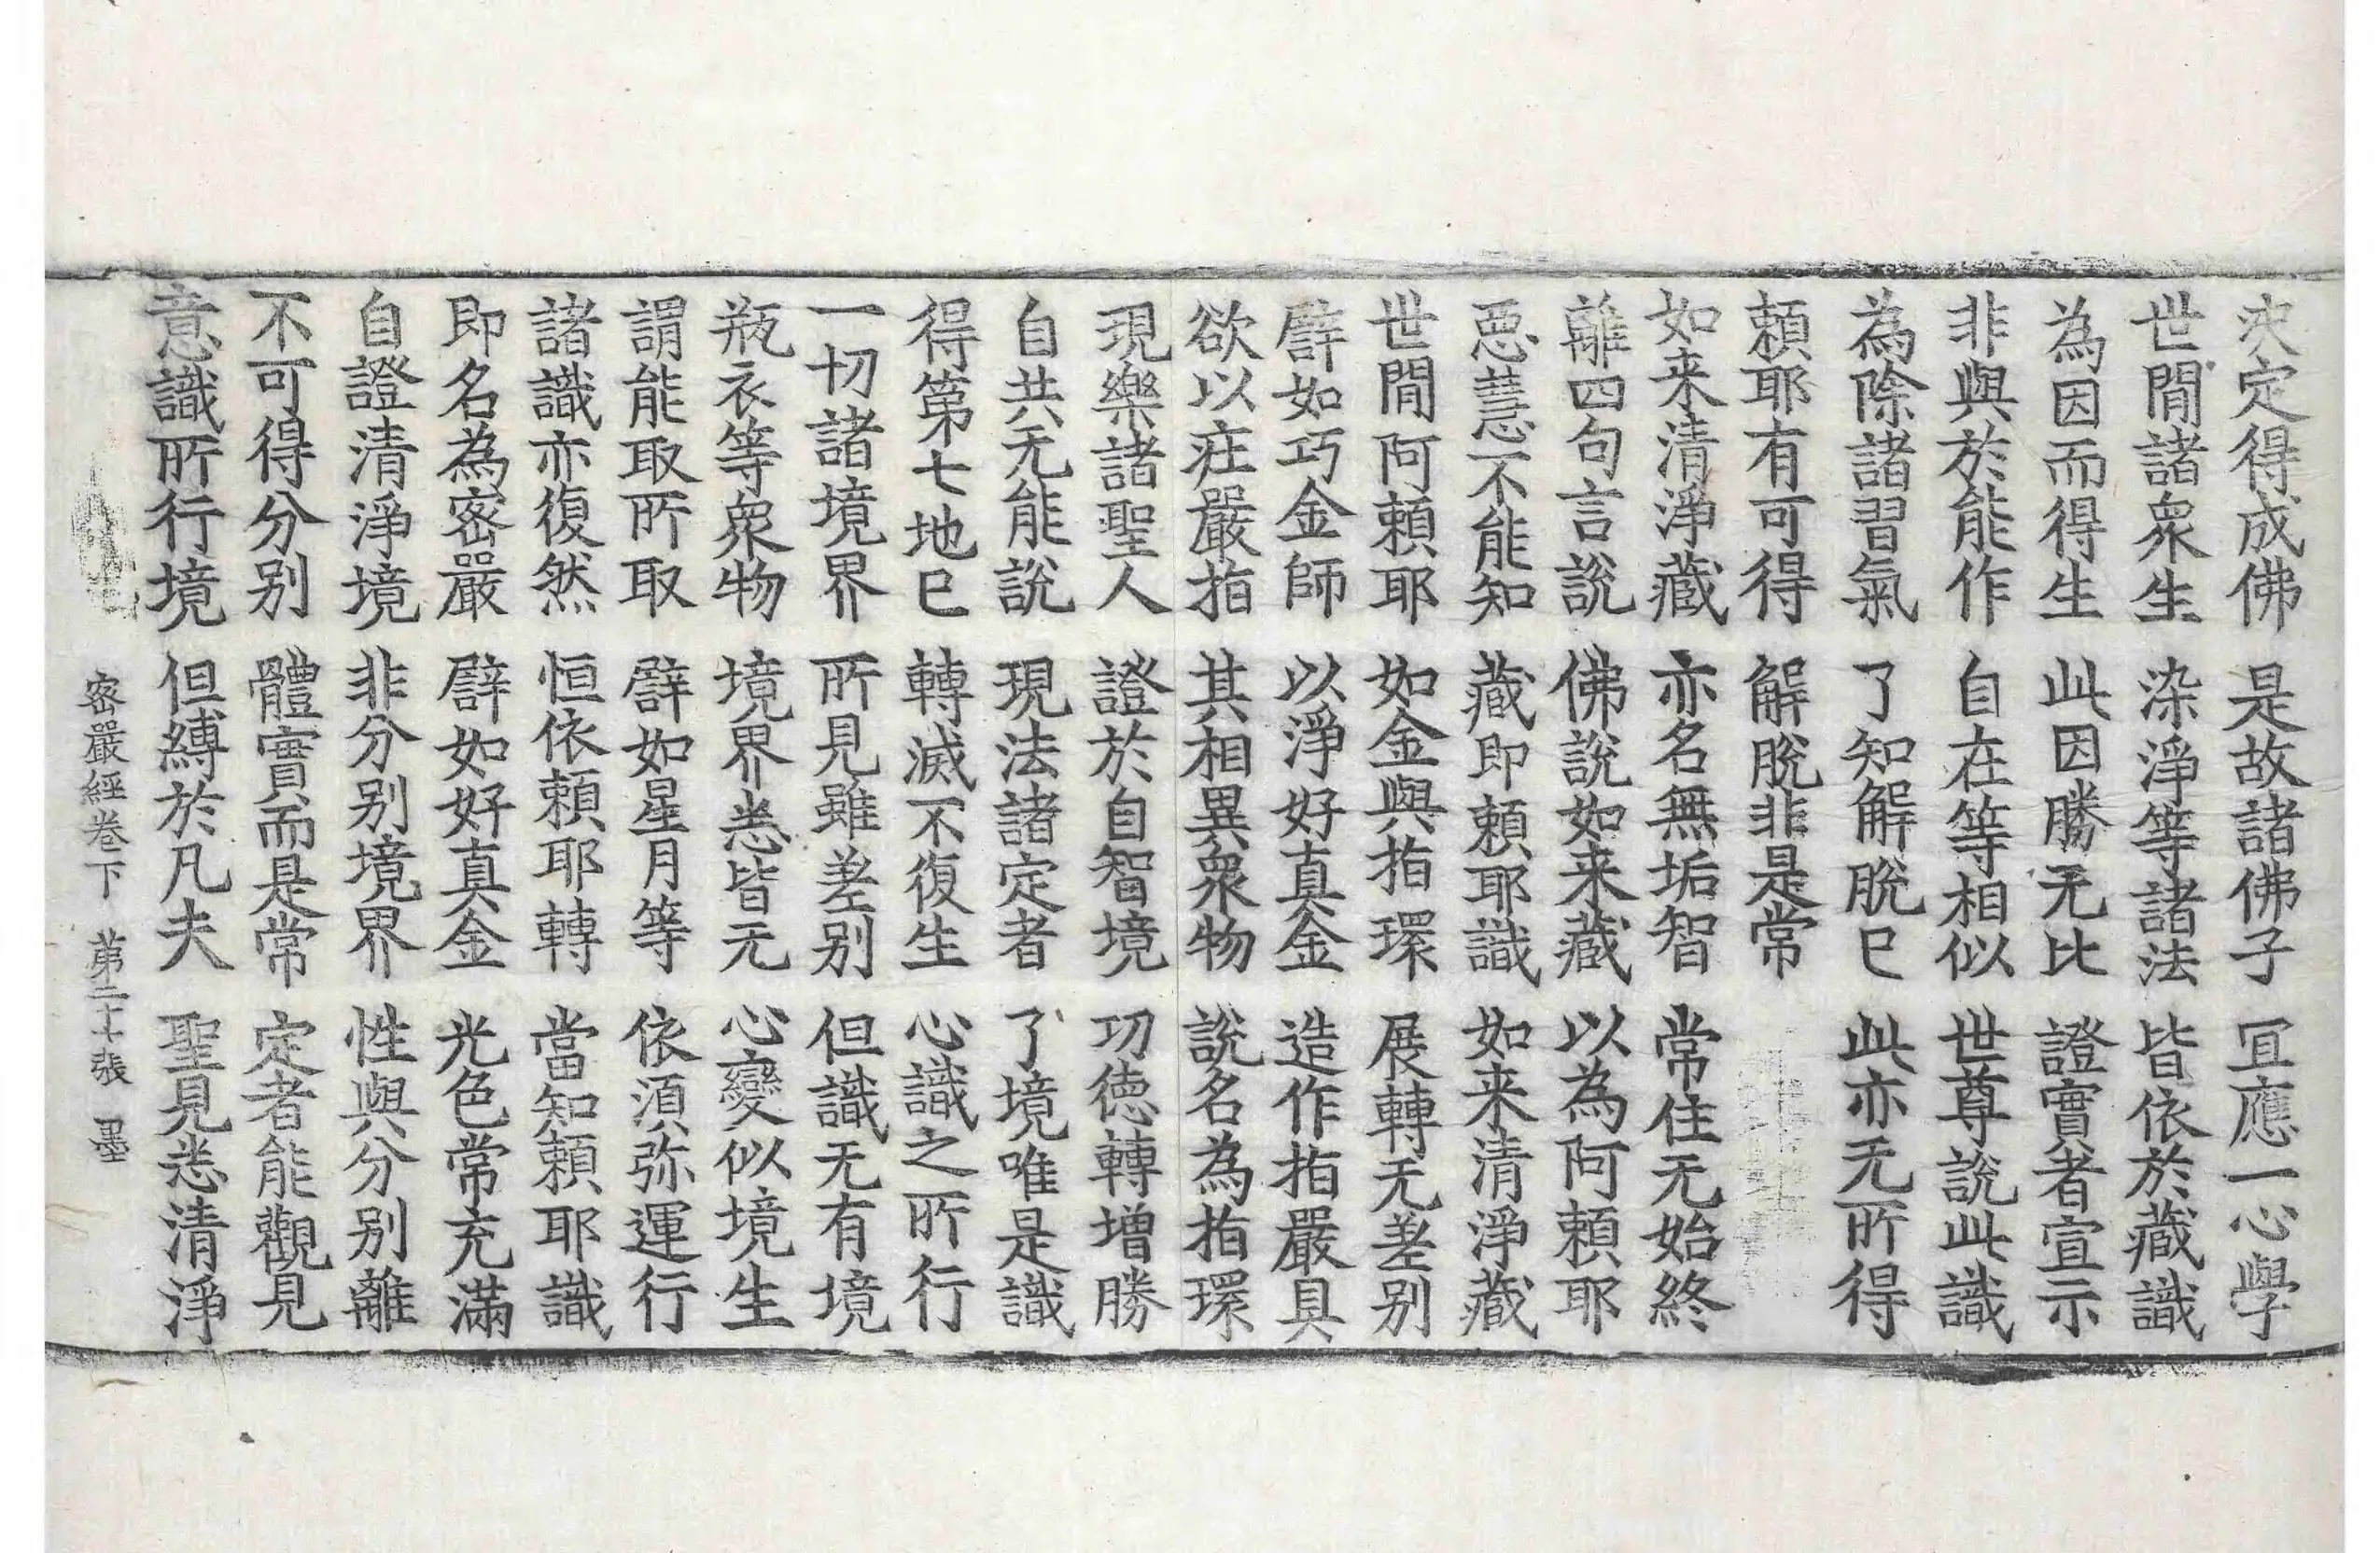 决定得成佛 是故諸佛子 冝應一心學
世間諸衆生 染淨等諸法 皆依於藏識
為因而得生 此因勝无比 證實者宣示
非與於能作 自在等相似 世尊說此識
為除諸習氣 了知解脫已 此亦无所得
頼耶有可得 解脫非是常
如来清淨藏 亦名無垢智 常住无始終
離四句言說 佛說如来藏 以為阿頼耶
惡慧不能知 藏即頼耶識 如来清淨藏
世間阿頼耶 如金與指環 展轉无差别
譬如巧金師 以淨好真金 造作指嚴具
欲以莊嚴指 其相異衆物 說名為指環
現樂諸聖人 證於自智境 功徳轉增勝
自共无能說 現法諸定者 了境唯是識
得第七地已 轉滅不復生 心識之所行
一切諸境界 所見雖差别 但識无有境
瓶衣等衆物 境界悉皆无 心變似境生
謂能取所取 譬如星月等 依須弥運行
諸識亦復然 恒依頼耶轉 當知頼耶識
即名為密嚴 譬如好真金 光色常充滿
自證清淨境 非分别境界 性與分别離
不可得分别 體實而是常 定者能觀見
意識所行境 但縛於凡夫 聖見悉清淨
密嚴經卷下 第二十張 墨